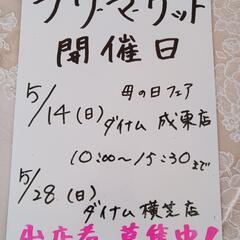 フリーマケット
開催日
5/14(日) 母の日フェア
ダイナム 成東店
10:00〜15:30まで
5/28(日)
ダイナム 横芝店
出店者 募集中!